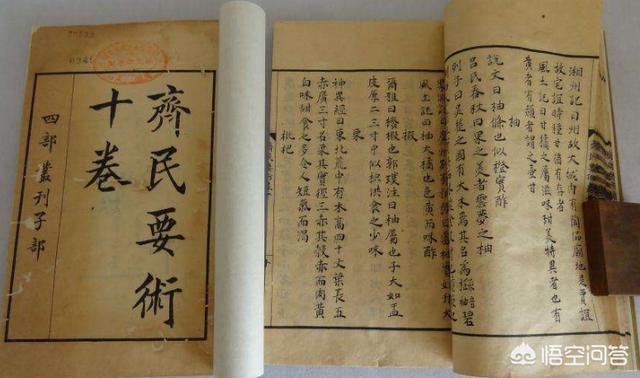 齊民要術
十卷
四部叢刊子部
湘州記曰州故大城內有陶侃廟地是賈誼
故宅誼時種甘猶有存者
風土記曰甘橘之屬滋味甜美特異者也有
黃者有赬者謂之壺甘
柚
說文曰柚條也似橙實酢
呂氏春秋曰果之美者雲夢之柚
列子曰吳楚之國有大木焉其名為櫾音柚碧
風土記曰柚大橘也色黃而味酢
椵
爾雅曰櫠椵也郭璞注曰柚屬也子大如盂
皮厚二三寸中似枳供食之少味
栗
神異經曰東北荒中有木高四十丈葉長五
赤廣三寸名栗其實徑三赤其殼赤而肉黃
白味甜食之多令人短氣而渴
枇杷
悟空问答